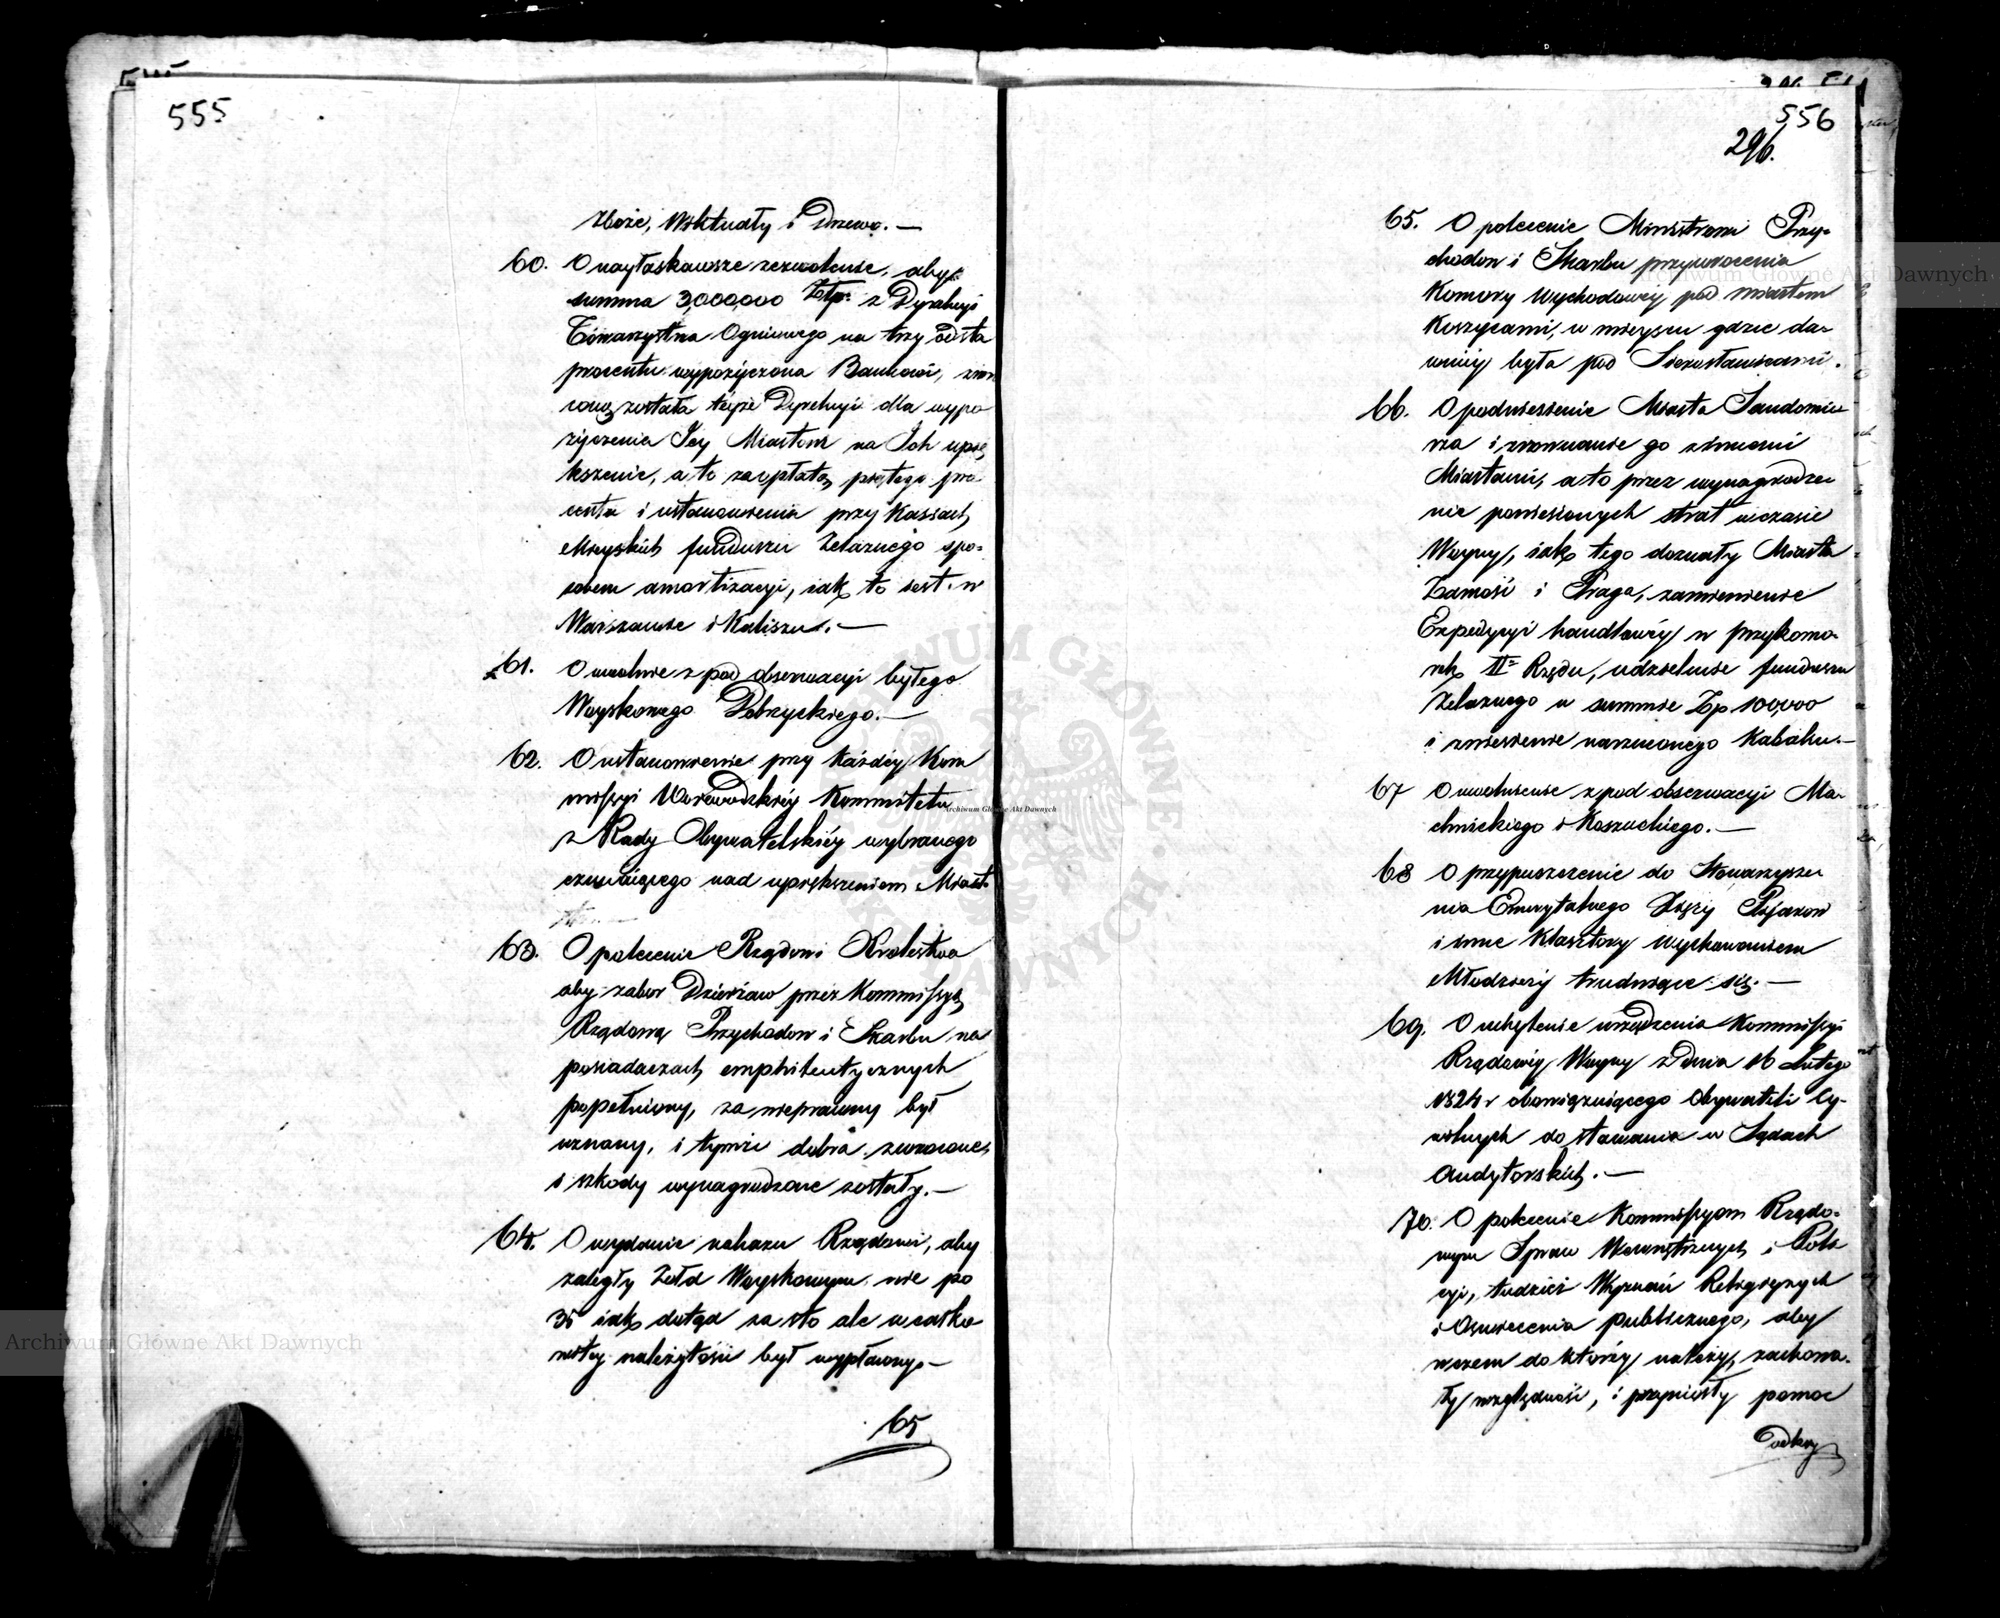 555
Zboże, Wiktuały i Drzewo. —
60. O nayłaskawsze zezwolenie, aby
summa 3,000,000 Złp. z Dyrekcyi
Towarzystwa Ogniowego na trzy od sta
procentu wypożyczona Bankowi, zwró
coną została teyże Dyrekcyi dla wypo
życzenia Jey Miastom na Ich upię
kszenie, a to za opłatą piątego pro
centu i ustanowienia przy Kassach
Mieyskich funduszu Żelaznego spo-
sobem amortizacyi, iak to iest w
Warszawie i Kaliszu. —
61. O uwolnie z pod obserwacyi byłego
Woyskowego Dobrzyckiego. —
62. O ustanowienie przy każdéy Kom
missyi Woiewodzkiéy Kommitetu
z Rady Obywatelskiéy wybranego
czuwaiącego nad upiększeniem Miast
63. O polecenie Rządowi Królestwa
aby zabor Dzierżaw przez Kommissyą
Rządową Przychodow i Skarbu na
posiadaczach emphiteutycznych
popełniony, za nieprawny był
uznany, i tymże dobra zwrócone,
i szkody wynagrodzone zostały. —
64. O wydanie nakazu Rządowi, aby
zaległy Żołd Woyskowym nie po
35 iak dotąd za sto ale w całko
witey należytości był wypłacony. —
65
556
296.
65. O polecenie Ministrowi Przy-
chodow i Skarbu przywrócenia
Komory Wychodowéy pod Miastem
Koszycami, w mieyscu gdzie da-
wniéy była pod Sierosławicami.
66. O podniesienie Miasta Sandomie
rza i zrównanie go z innemi
Miastami, a to przez wynagrodze
nie poniesionych strat w czasie
Woyny, iak tego doznały Miasta
Zamość i Praga, zamienienie
Expedycyi handlowéy w przykomo-
rek II= Rzędu, udzielenie funduszu
Żelaznego w summie Zp 100,000
i zniesienie narzuconego Kabału. —
67 O uwolnienie z pod obserwacyi Ma-
chnickiego i Koszuckiego. —
68 O przypuszczenie do Stowarzysze
nia Emerytalnego Xięży Piiarow
i inne Klasztory Wychowaniem
Młodzieży trudniące się. —
69. O uchylenie urządzenia Kommissyi
Rządowéy Woyny z Dnia 16 Lutego
1824 r obowiązuiącego Obywateli Cy-
wilnych do stawania w Sądach
Audytorskich. —
70. O polecenie Kommissyom Rządo-
wym Spraw Wewnętrznych i Poli
cyi, tudzież Wyznań Religiynych
i Oświecenia publicznego, aby
w czem do któréy należy, zachowa-
ły względność, i przyniosły pomoc
Archiwum Główne Akt Dawnych
Archiwum Główne Akt Dawnych
Archiwum Główne Akt Dawnych